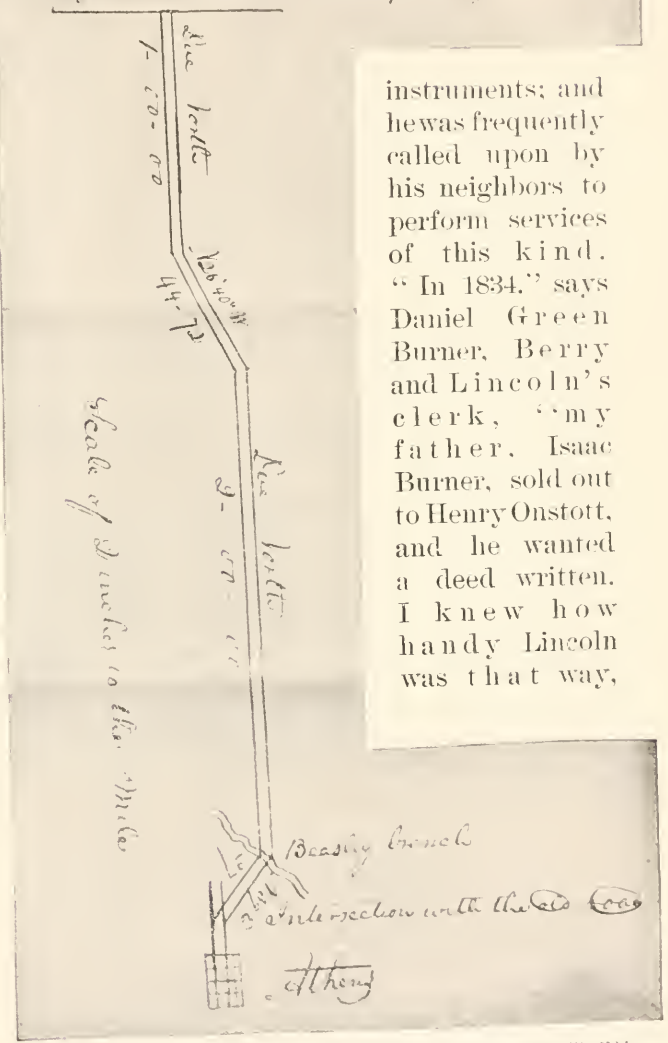 instruments; and
he was frequently
called upon by
his neighbors to
perform services
of this kind.
“In 1834,” says
Daniel Green
Burner, Berry
and Lincoln’s
clerk, “my
father, Isaac
Burner, sold out
to Henry Onstott,
and he wanted
a deed written.
I knew how
handy Lincoln
was that way,
Due North
N 26° 40" W
44-72
Due North
Scale of 2 inches to the Mile
Beasley branch
Intersection with the old Road
Athens